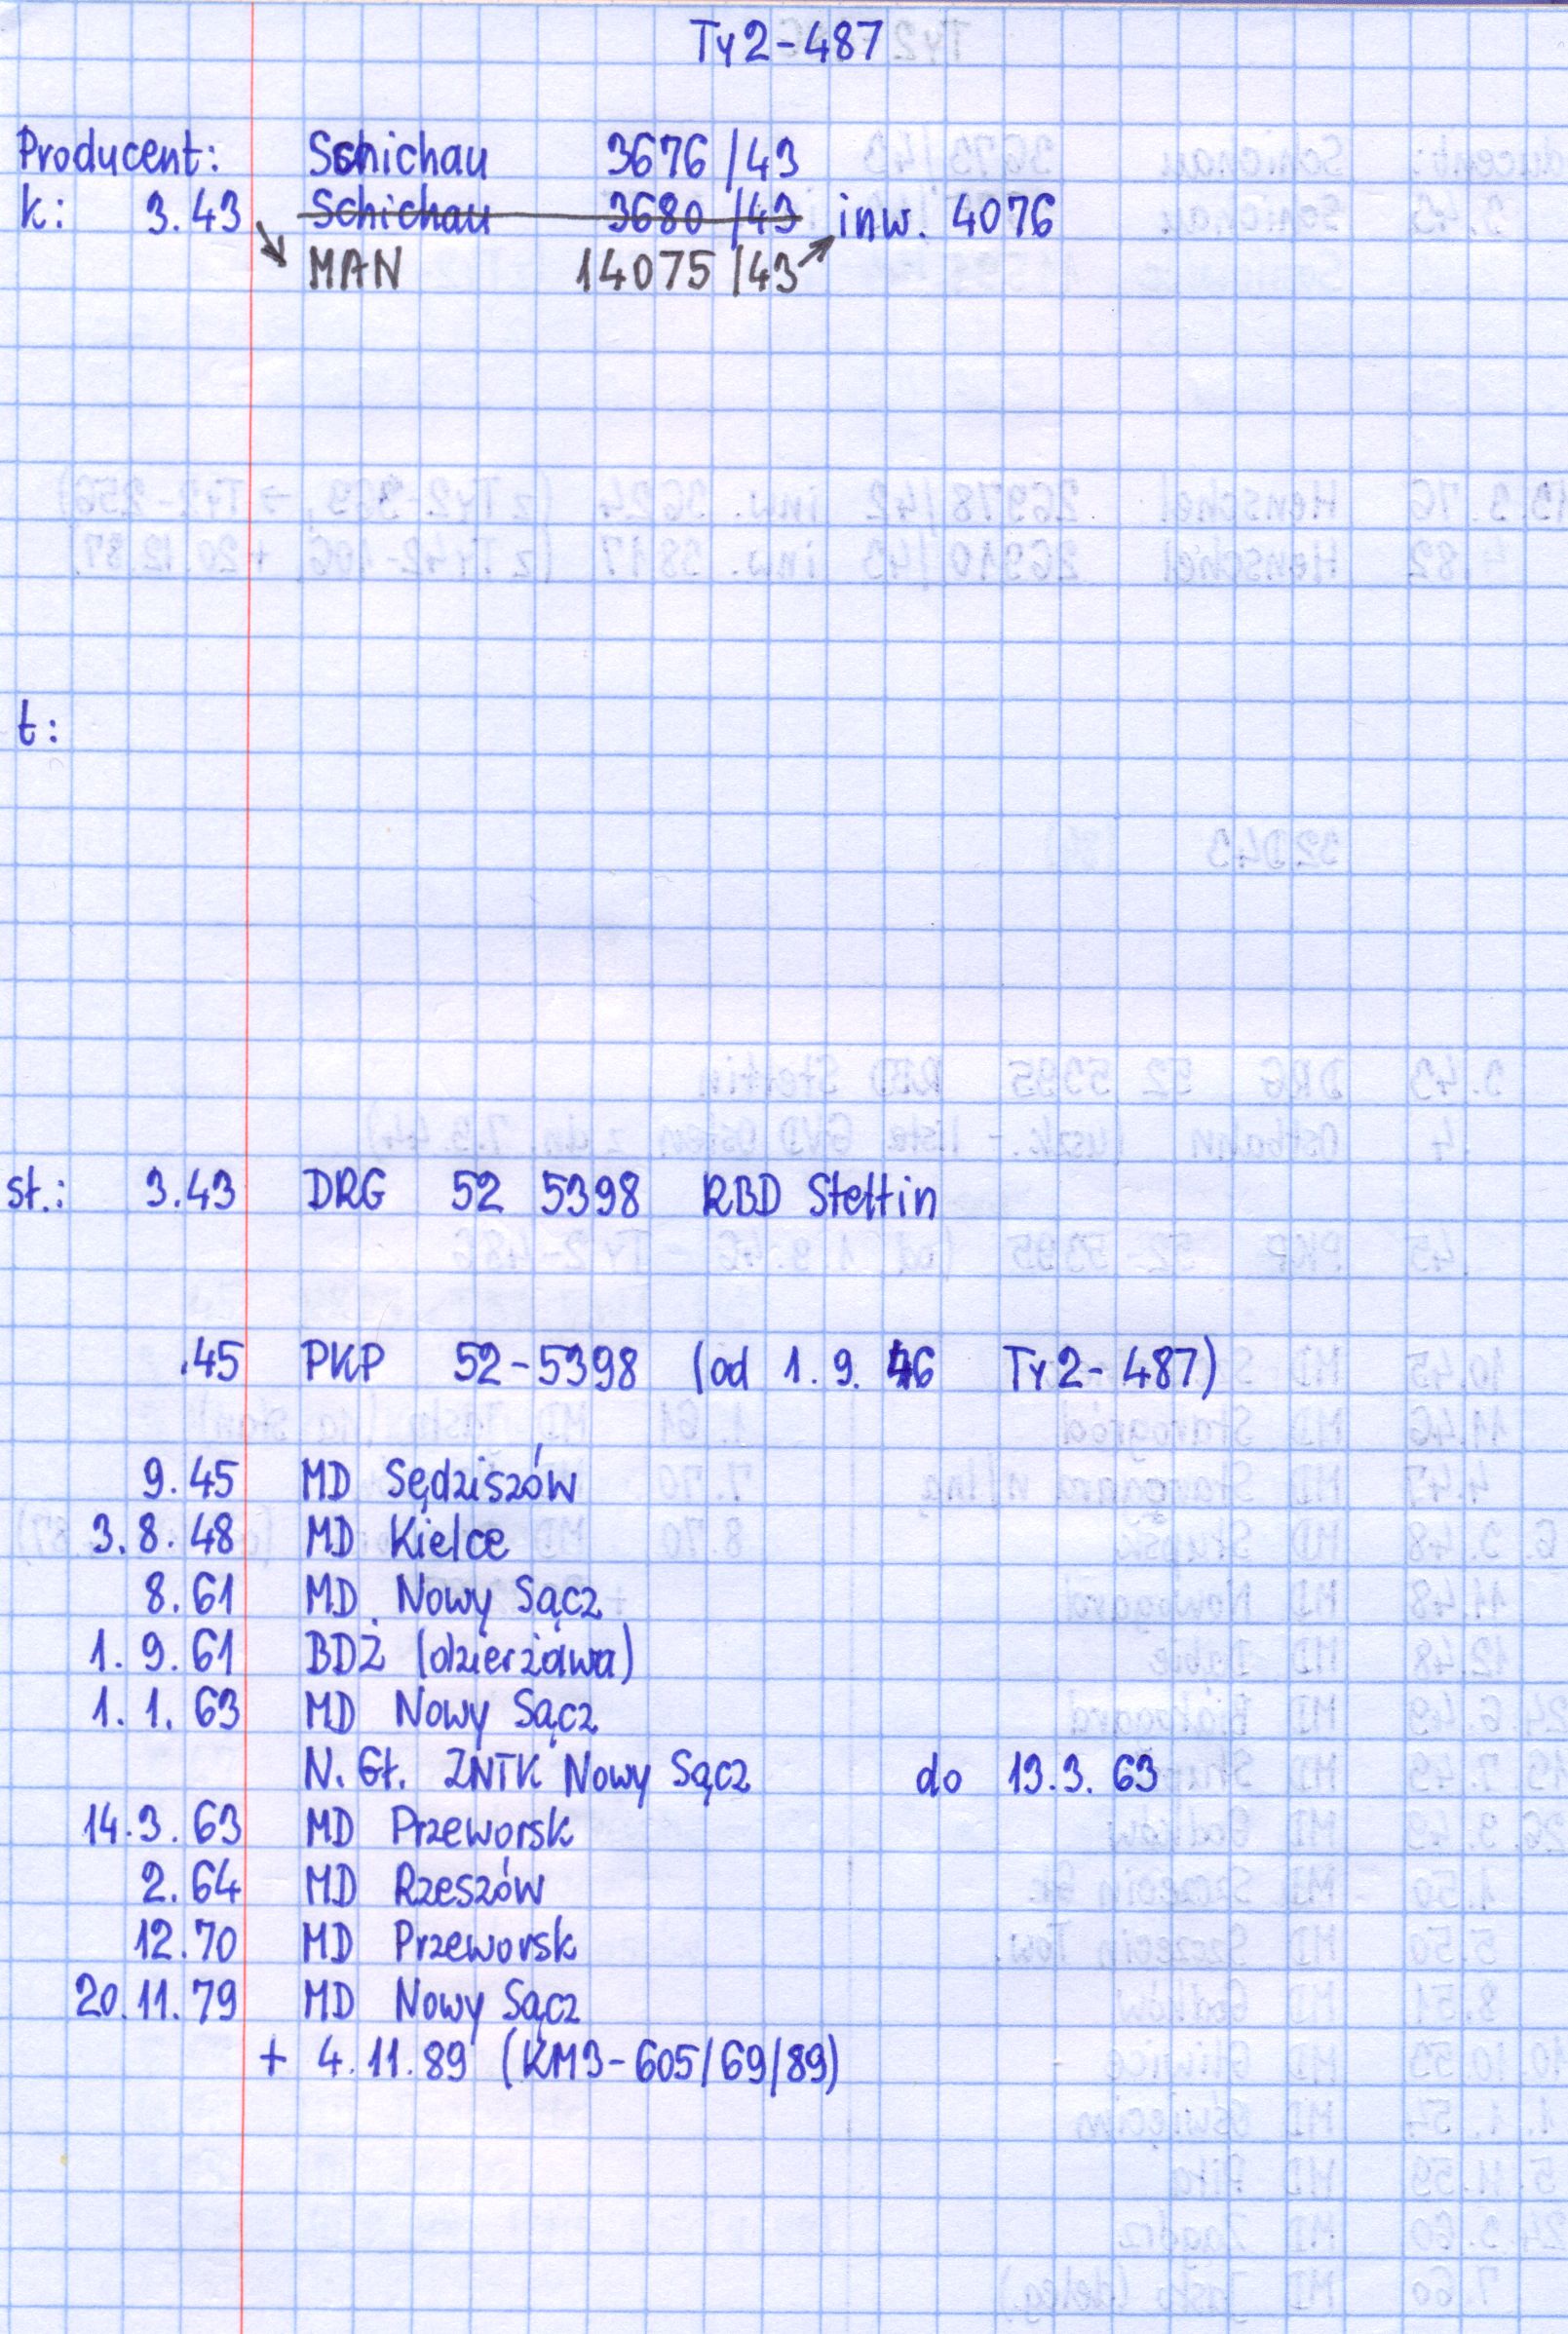 Ty2-487
Producent: Schichau 3676/43
k: 3.43 Schichau 3680/43 inw. 4076
MAN 14075/43
t:
st.: 3.43 DRG 52 5398 RBD Stettin
.45 PKP 52-5398 (od 1.9.46 Ty2-487)
9.45 MD Sędziszów
3.8.48 MD Kielce
8.61 MD Nowy Sącz
1.9.61 BDŻ (dzierżawa)
1.1.63 MD Nowy Sącz
N. Gł. ZNTK Nowy Sącz do 13.3.63
14.3.63 MD Przeworsk
2.64 MD Rzeszów
12.70 MD Przeworsk
20.11.79 MD Nowy Sącz
+ 4.11.89 (KM3-605/69/89)